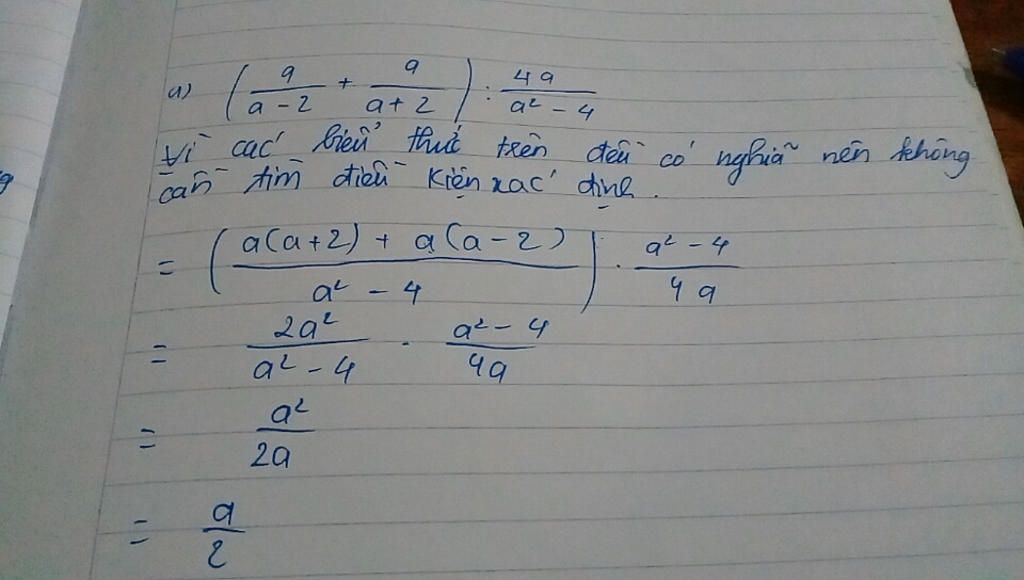 a) (a/(a - 2) + a/(a + 2)) : 4a/(a² - 4)
Vì các biểu thức trên đều có nghĩa nên không
cần tìm điều kiện xác định.
= ((a(a+2) + a(a-2))/(a² - 4)) . (a² - 4)/4a
= 2a²/(a² - 4) . (a² - 4)/4a
= a²/2a
= a/2